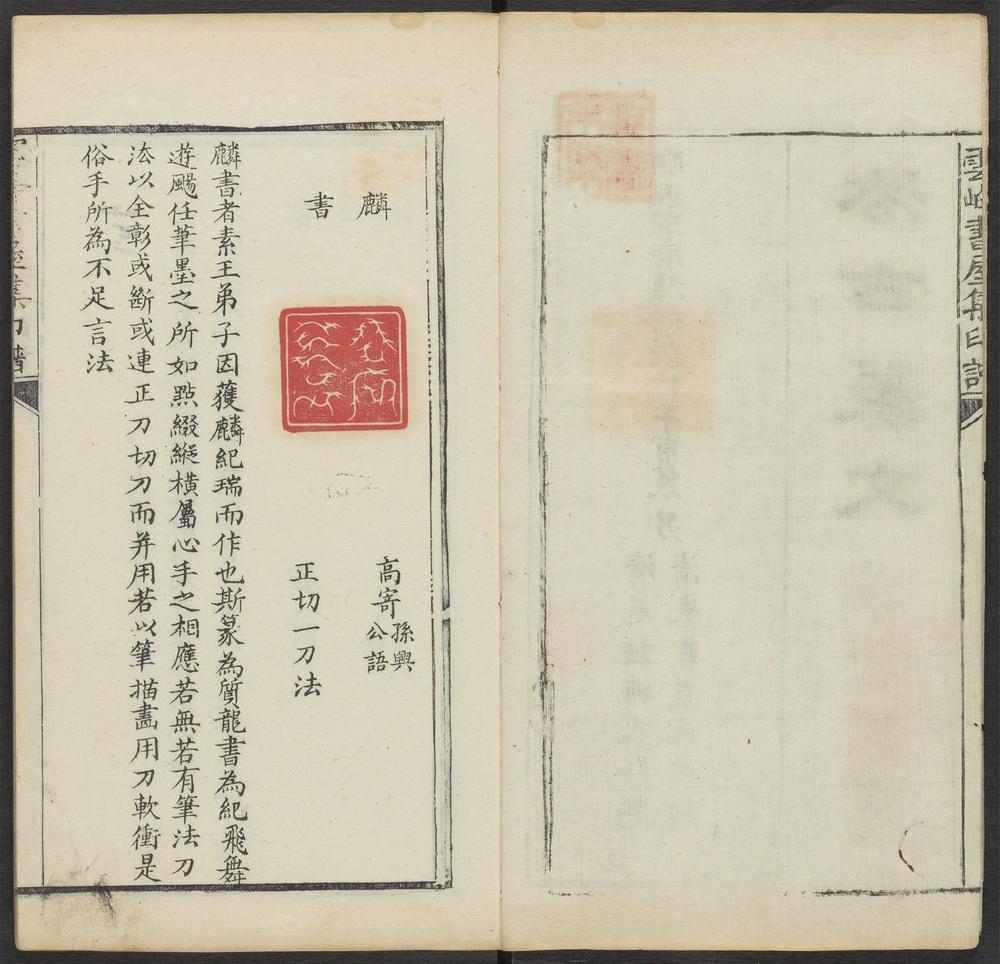 雲峰書屋集印譜
麟書
高寄 孫興公語
正切一刀法
麟書者素王弟子因獲麟紀瑞而作也斯篆為質龍書為紀飛舞
遊颺任筆墨之所如點綴縱橫屬心手之相應若無若有筆法刀
法以全彰或斷或連正刀切刀而并用若以筆描畫用刀軟衝是
俗手所為不足言法